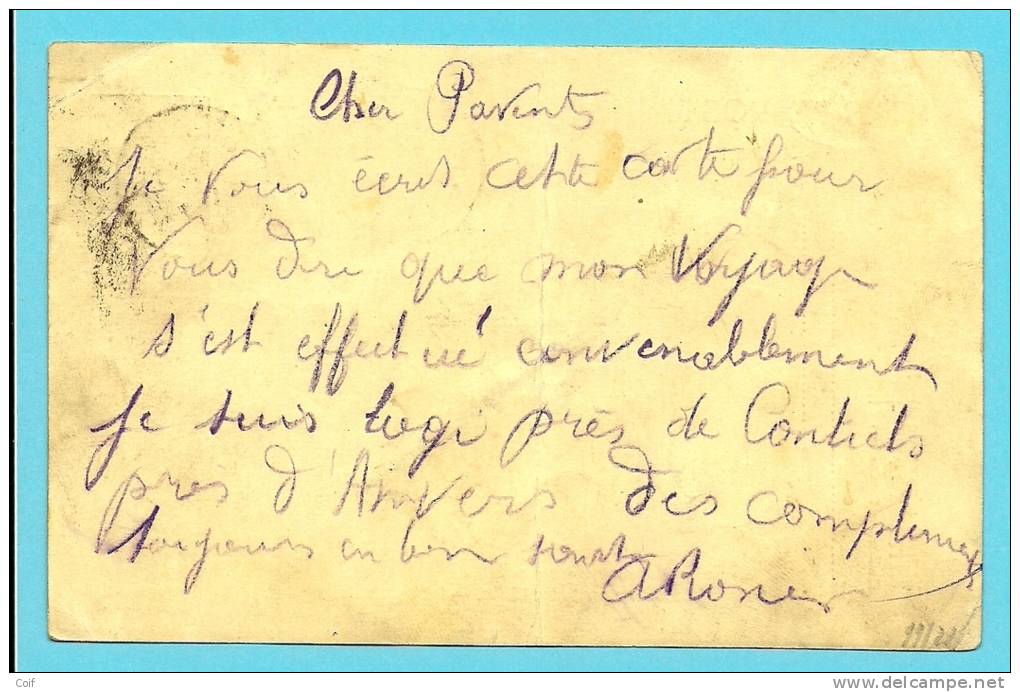 Cher Parents
Je vous écris cette carte pour
Vous dire que mon Voyage
s'est effectué convenablement
Je suis logé près de Contich
près d'Anvers des compliments
toujours en bon santé
Coif
www.delcampe.net